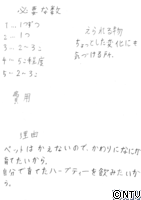 必要な数
1…1つずつ
2…1つ
3…2~3こ
4…5こ程度
5…2~3こ
えられる物
ちょっとした変化にも
あづけるみ。
費用
理由
ペットはかえないので、かわりになにか
育てたいから。
自分で育てたハーブティーを飲みたいか
ら。
©NTV